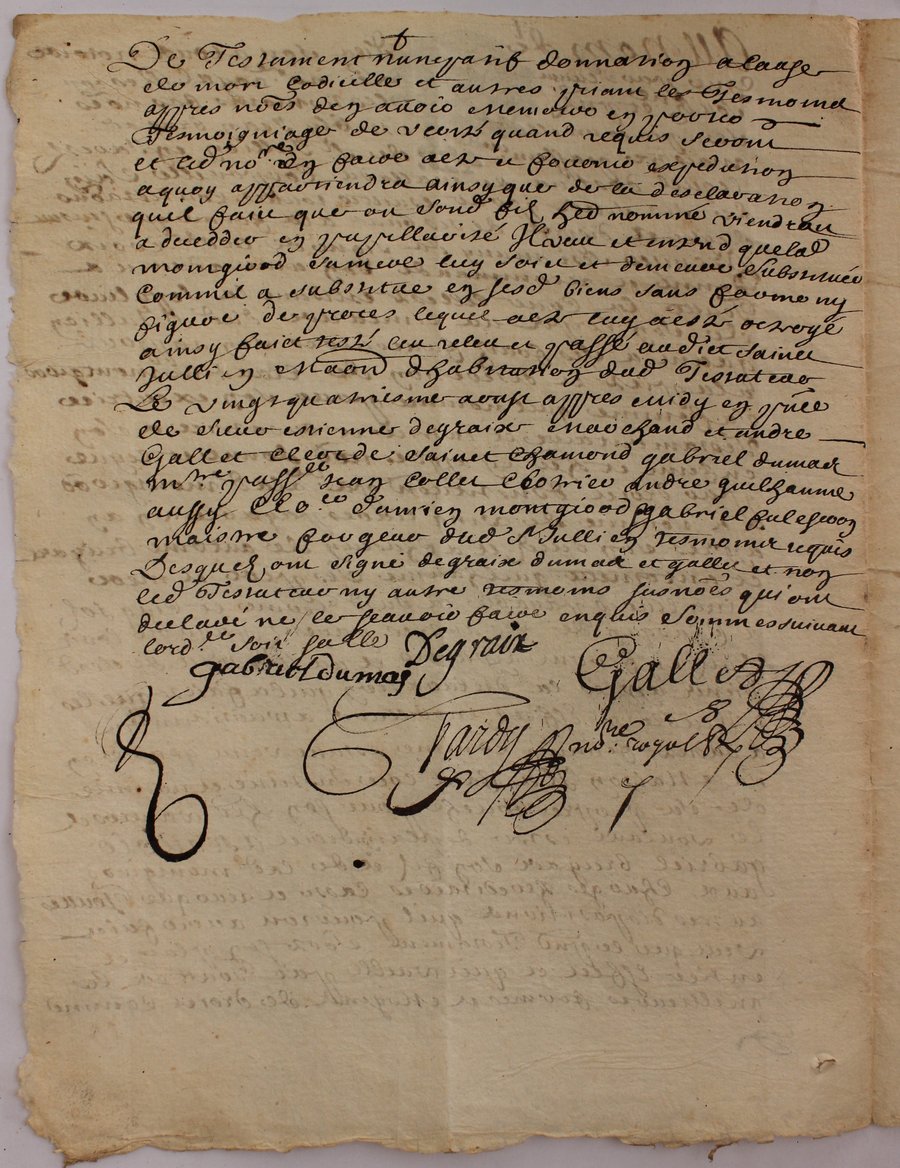 De Testament nuncupatif donnation a cause
de mort Codicille et autres priant les Tesmoins
appres nōēs den avoir memoire en porter
Tesmoigniage de verité quand requis seront
et led no.re den faire acte et fournir expedition
a quoy appartiendra ainsy que de la desclaration
quil faict que ou sond filz hed nomme viendroit
a decedder en pupillarité Il veut et entend que lad
montgiood luy soict et demeure Substituée
Comme a substitue en sesd biens sans forme ny
figure de proces lequel acte luy a esté octroyé
ainsy faict leu releu et passé aud St Sainct
Jullien Maison dhabitation dud Testateur
Le vingt quatriesme aoust appres midy en p̄n̄ce
de sieur estienne degraix marchand et andre
Gallet Clerc de Sainct Chamond gabriel dumas
m.tre pass.er Jean Collet Clotrier andre guilhaume
aussy Clo.er damien montgiood gabriel
maistre forgeur dud St Jullien tesmoins requis
Desquelz ont Signé degraix dumas et gallet et non
led Testateur ny autres tesmoins susnōēs qui ont
declaré ne le scavoir faire enquis Sommes suivant
lord.ce soit Sellé
Degraix
gabriel dumas
Gallet
Tardy no.re royal